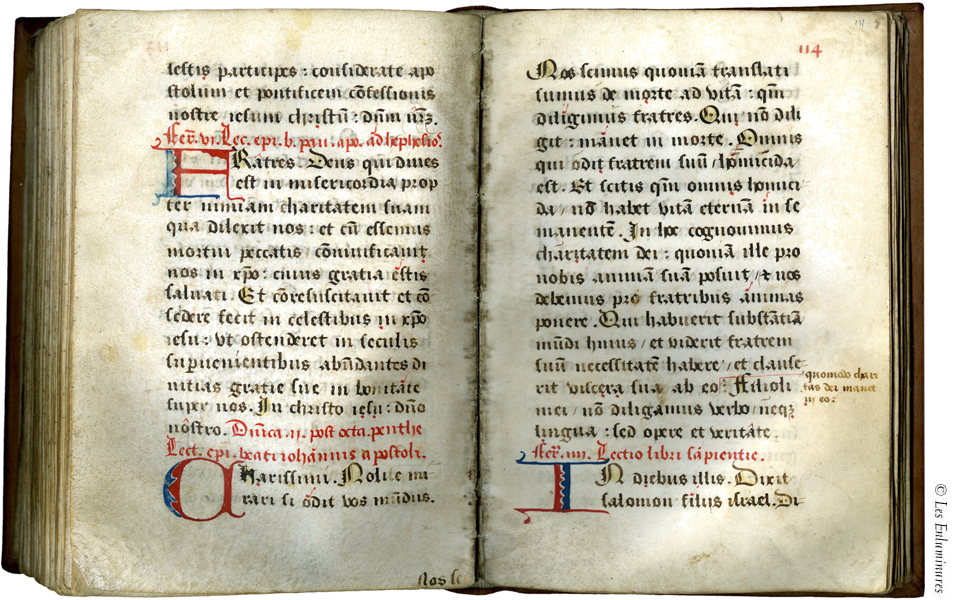 lestis participes : considerate apo
stolum et pontificem cõfessionis
nostre / iesum christũ : dñm nr̃ꝫ.
Fer. vi. Lec. epi. b. pau. apo. ad hephesios.
FRatres. Deus qui dives
est in misericordia prop
ter nimiam charitatem suam
qua dilexit nos : et cũ essemus
mortui peccatis / cõvivificavit
nos in xp̃o : cuius gratia estis
salvati. Et cõresuscitavit et cõ
sedere fecit in celestibus in xp̃o
iesu : vt ostenderet in seculis
supervenientibus abũdantes di
vitias gratie sue / in bonitate
super nos. In christo iesu : dño
nostro. Dñica .ii. post octa. penthe
Lect. epi. beati iohãnnis apostoli.
CHarissimi. Nolite mi
rari si odit vos mũdus.
Nos sc
114
Nos scimus quoniã translati
sumus de morte ad vitã : qm̃
diligimus fratres. Qui nõ dili
git : manet in morte. Omnis
qui odit fratrem suũ / homicida
est. Et scitis qm̃ omnis homici-
da / nõ habet vitã eternã in se
manentẽ. In hoc cognovimus
charitatem dei : quoniã ille pro
nobis animam suã posuit / et nos
debemus pro fratribus animas
ponere. Qui habuerit substãtiã
mũdi huius / et viderit fratrem
suũ necessitatẽ habere / et clause
rit viscera sua ab eo : Filioli
quomodo chari
tas dei manet
in eo :
mei / nõ diligamus verbo / neqꝫ
lingua : sed opere et veritate.
Fer. iiii. Lectio libri sapientie.
IN diebus illis. Dixit
salomon filiis israel. Di-
© Les Enluminures